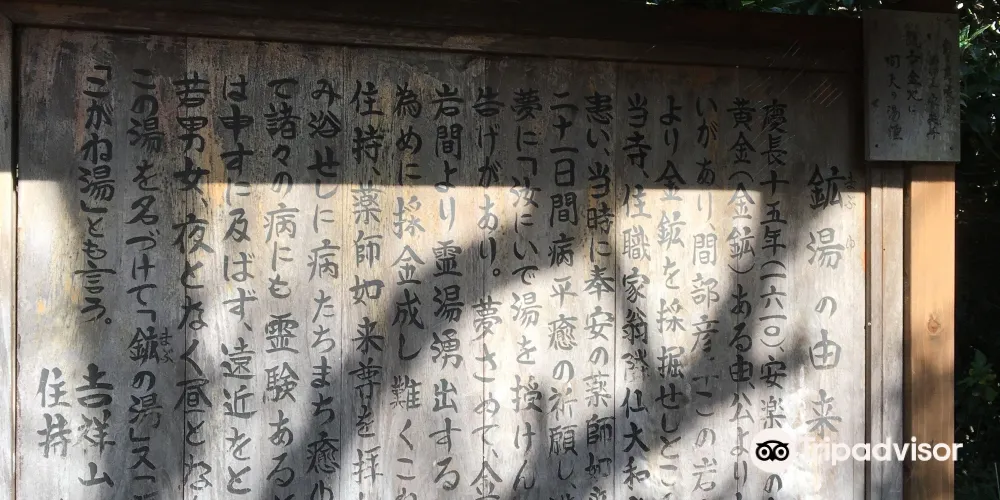 鉱湯の由来
まぶ ゆ
慶長十五年(一六一〇)安楽の
黄金(金鉱)ある由、公より
いがあり間部彦「この岩
より金鉱を採掘せしところ
当寺、住職家翁隣仙大和
患い、当時に奉安の薬師如
二十一日間病平癒の祈願し
夢に「汝にいで湯を授けん
告げがあり。夢さめて、金
岩間より霊湯湧出する
為めに採金成し難くこれ
住持、薬師如来尊を拝
み浴せしに病たちまち癒
て諸々の病にも霊験ある
は申すに及ばず、遠近をと
若男女、夜となく昼とな
この湯を名づけて「鉱の湯」又こ
まぶ
「こがね湯」とも言う。
吉祥山
住持
tripadvisor